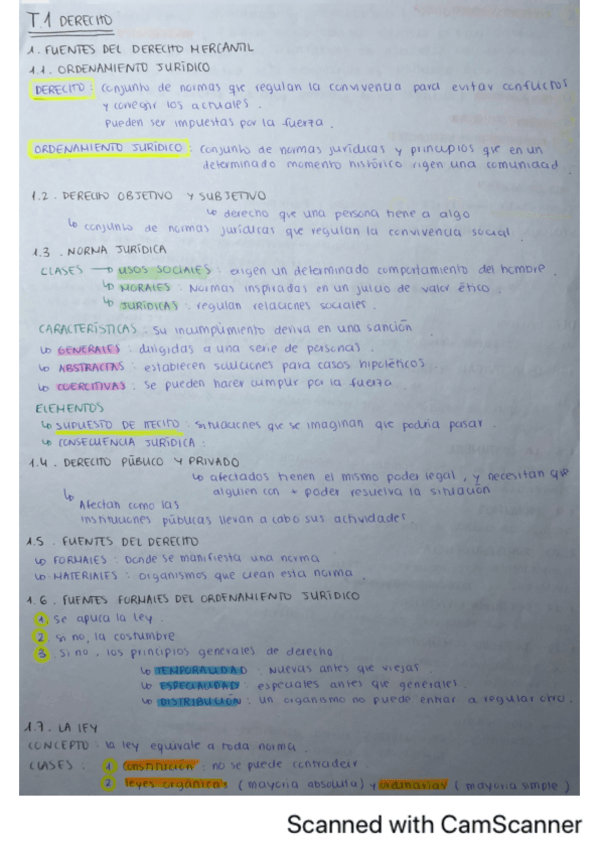 T1 DERECHO
1. FUENTES DEL DERECHO MERCANTIL
1.1. ORDENAMIENTO JURÍDICO
DERECHO: conjunto de normas que regulan la convivencia para evitar conflictos
y corregir los actuales.
Pueden ser impuestas por la fuerza.
ORDENAMIENTO JURÍDICO: conjunto de normas jurídicas y principios que en un
determinado momento histórico rigen una comunidad.
1.2. DERECHO OBJETIVO Y SUBJETIVO
↳ derecho que una persona tiene a algo
↳ conjunto de normas jurídicas que regulan la convivencia social.
1.3. NORMA JURÍDICA
CLASES → USOS SOCIALES: exigen un determinado comportamiento del hombre.
↳ MORALES: Normas inspiradas en un juicio de valor ético.
↳ JURÍDICAS: regulan relaciones sociales.
CARACTERÍSTICAS: Su incumplimiento deriva en una sanción
↳ GENERALES: dirigidas a una serie de personas.
↳ ABSTRACTAS: establecen soluciones para casos hipotéticos
↳ COERCITIVAS: Se pueden hacer cumplir por la fuerza.
ELEMENTOS
↳ SUPUESTO DE HECHO: situaciones que se imaginan que podría pasar.
↳ CONSECUENCIA JURÍDICA:
1.4. DERECHO PÚBLICO Y PRIVADO
↳ afectados tienen el mismo poder legal, y necesitan que
alguien con + poder resuelva la situación
↳ Afectan como las
instituciones públicas llevan a cabo sus actividades
1.5. FUENTES DEL DERECHO
↳ FORMALES: Donde se manifiesta una norma
↳ MATERIALES: organismos que crean esta norma.
1.6. FUENTES FORMALES DEL ORDENAMIENTO JURÍDICO
1 Se aplica la ley.
2 si no, la costumbre
3 Si no, los principios generales de derecho
↳ TEMPORALIDAD: Nuevas antes que viejas.
↳ ESPECIALIDAD: especiales antes que generales.
↳ DISTRIBUCIÓN: un organismo no puede entrar a regular otro.
1.7. LA LEY
CONCEPTO: la ley equivale a toda norma.
CLASES: 1 Constitución: no se puede contradecir.
2 leyes orgánicas (mayoría absoluta) y ordinarias (mayoría simple)
Scanned with CamScanner